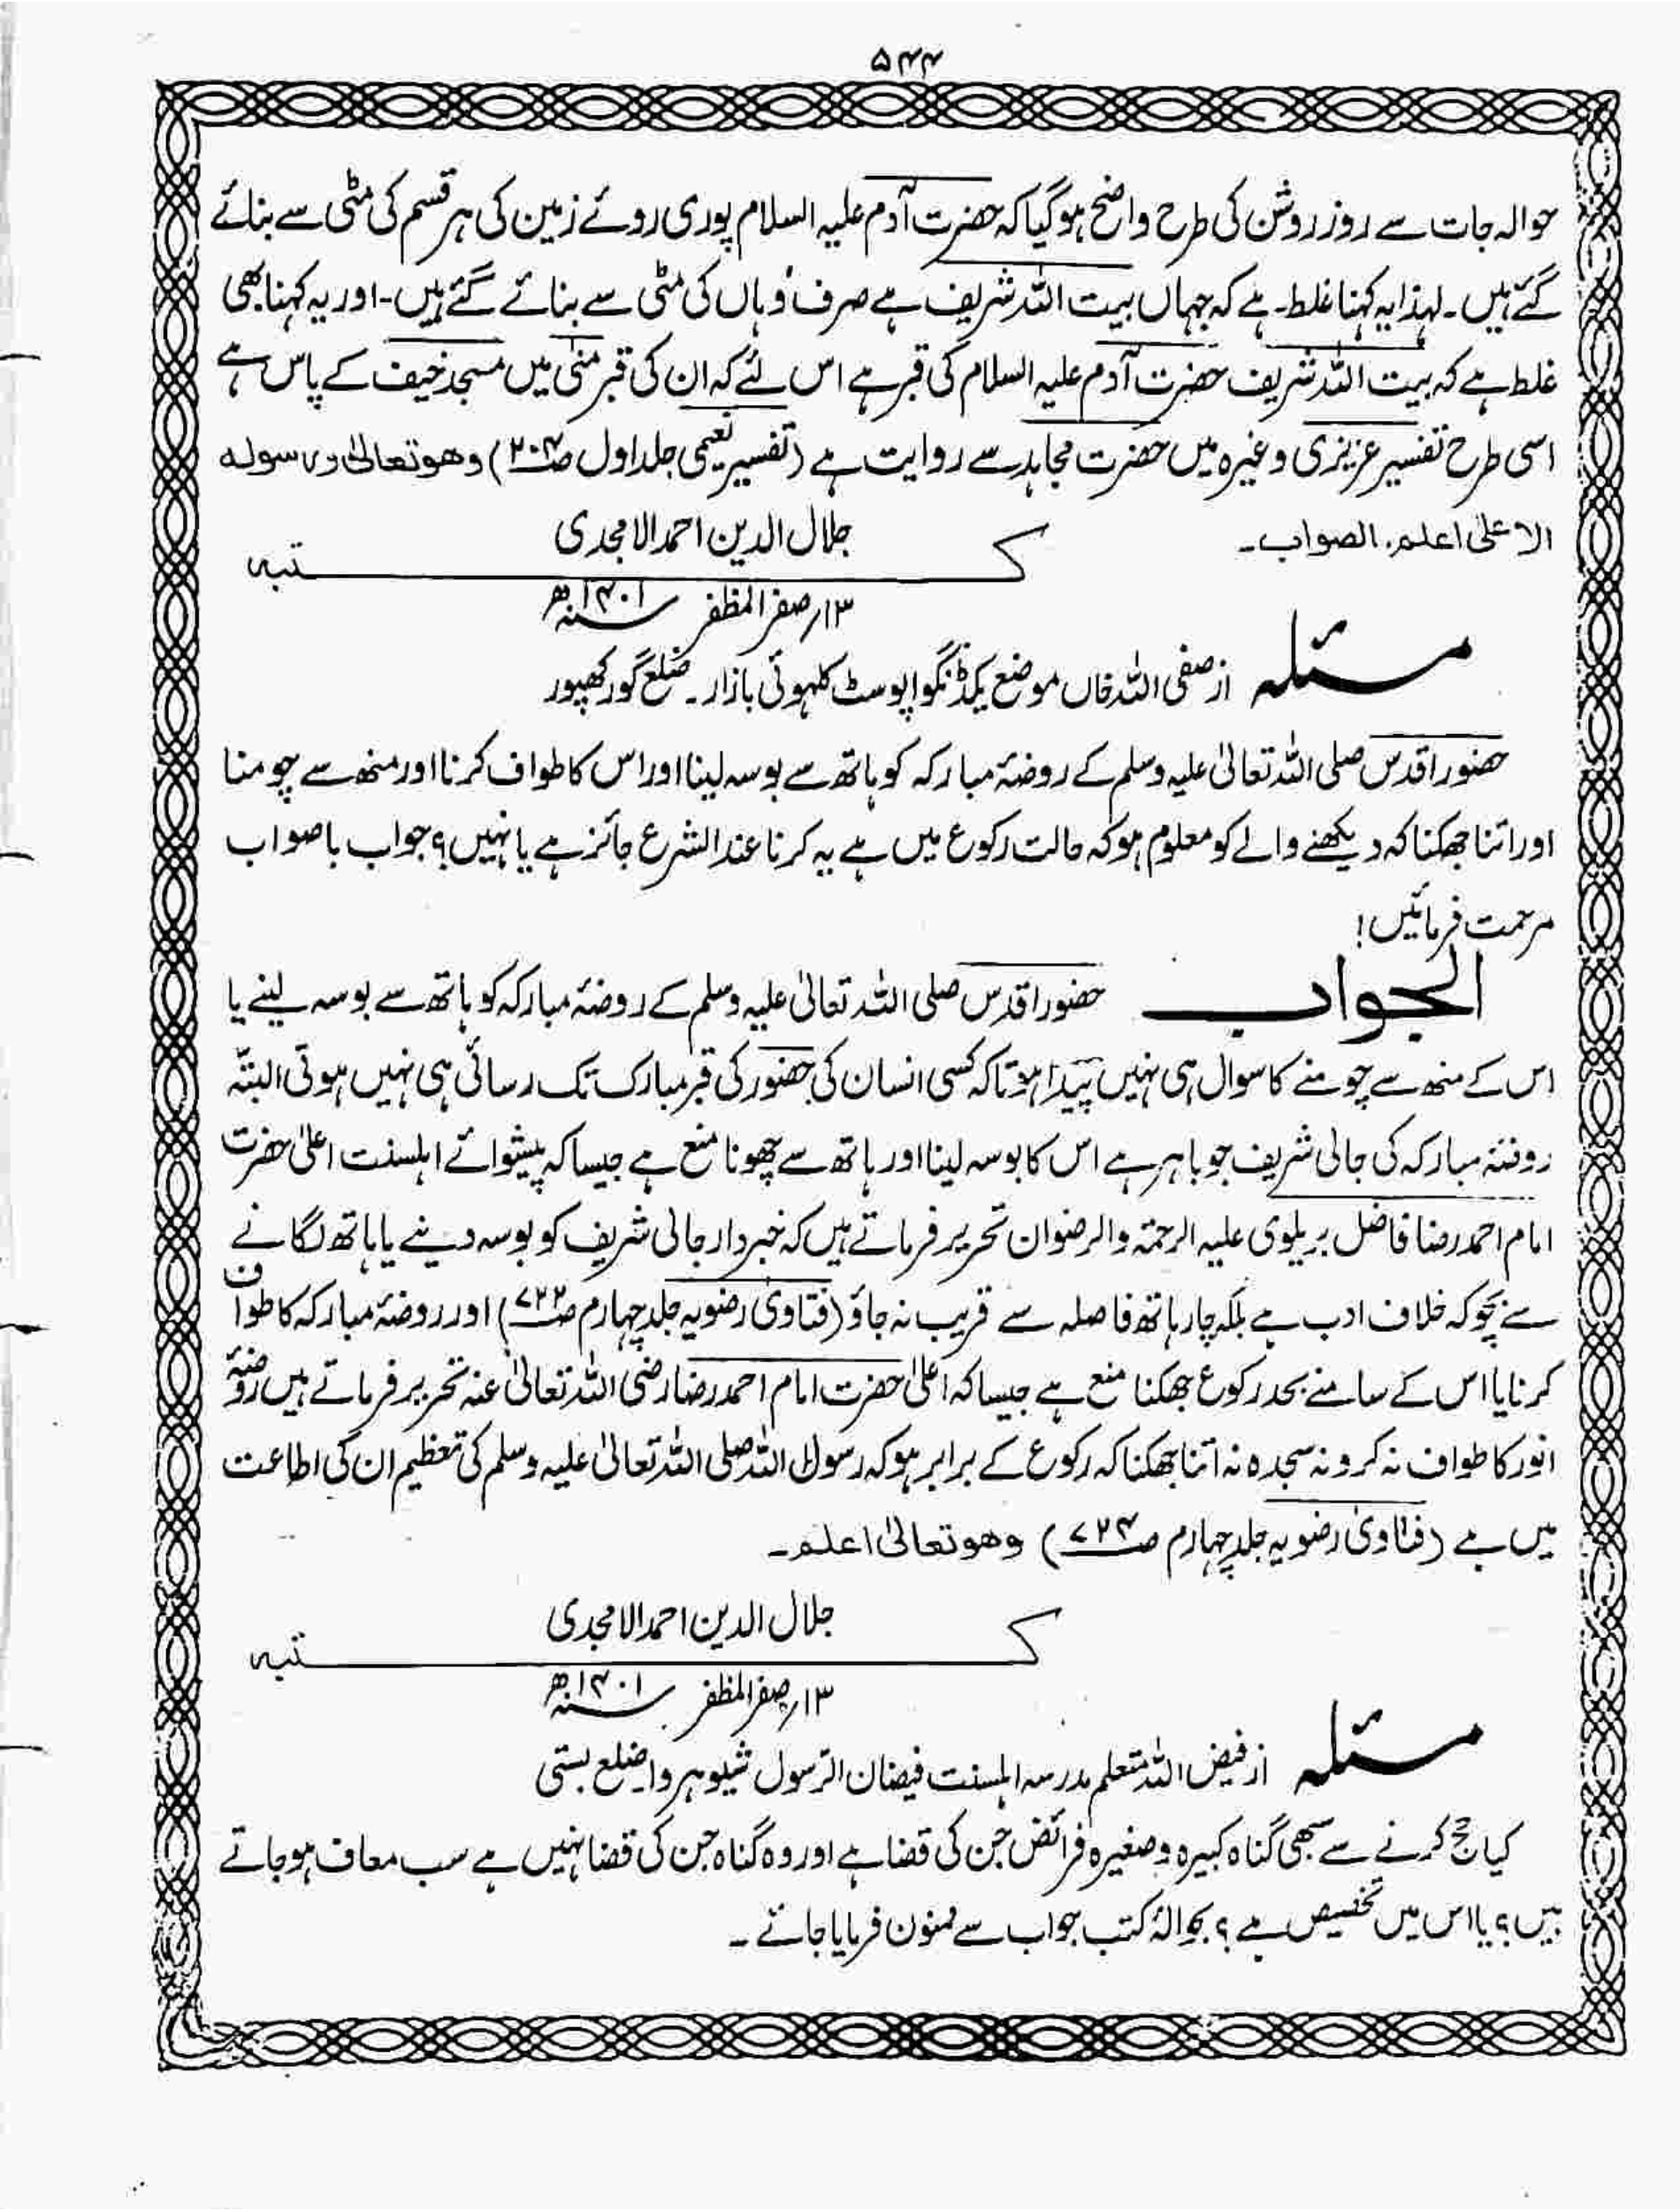 ۵۴۴
حوالہ جات سے روز روشن کی طرح واضح ہوگیا کہ حضرت آدم علیہ السلام پوری روئے زمین کی ہر قسم کی مٹی سے بنائے
گئے ہیں۔ لہذا یہ کہنا غلط ہے کہ جہاں بیت اللہ شریف ہے صرف وہاں کی مٹی سے بنائے گئے ہیں۔ اور یہ کہنا بھی
غلط ہے کہ بیت اللہ شریف حضرت آدم علیہ السلام کی قبر ہے اس لئے کہ ان کی قبر منیٰ میں مسجد خیف کے پاس ہے
اسی طرح تفسیر عزیزی وغیرہ میں حضرت مجاہد سے روایت ہے (تفسیر نعیمی جلد اول ص۲۰۴) وھو تعالیٰ ورسولہ
الاعلیٰ اعلم۔ الصواب۔
جلال الدین احمد الامجدی
کتبہ
۱۳؍ صفر المظفر سنہ ۱۴۰۱ھ
مسئلہ از صفی اللہ خاں موضع پوسٹ کلہوئی بازار۔ ضلع گورکھپور
حضور اقدس صلی اللہ تعالیٰ علیہ وسلم کے روضۂ مبارکہ کو ہاتھ سے بوسہ لینا اور اس کا طواف کرنا اور منھ سے چومنا
اور اتنا جھکنا کہ دیکھنے والے کو معلوم ہو کہ حالت رکوع میں ہے یہ کرنا عند الشرع جائز ہے یا نہیں؟ جواب باصواب
مرحمت فرمائیں!
الجواب حضور اقدس صلی اللہ تعالیٰ علیہ وسلم کے روضۂ مبارکہ کو ہاتھ سے بوسہ لینے یا
اس کے منھ سے چومنے کا سوال ہی نہیں پیدا ہوتا کہ کسی انسان کی حضور کی قبر مبارک تک رسائی ہی نہیں ہوتی البتہ
روضۂ مبارکہ کی جالی شریف جو باہر ہے اس کا بوسہ لینا اور ہاتھ سے چھونا منع ہے جیسا کہ پیشوائے اہلسنت اعلیٰ حضرت
امام احمد رضا فاضل بریلوی علیہ الرحمۃ والرضوان تحریر فرماتے ہیں کہ خبردار جالی شریف کو بوسہ دینے یا ہاتھ لگانے
سے بچو کہ خلاف ادب ہے بلکہ چار ہاتھ فاصلہ سے قریب نہ جاؤ (فتاویٰ رضویہ جلد چہارم ص۷۲۲) اور روضۂ مبارکہ کا طواف
کرنا یا اس کے سامنے بحد رکوع جھکنا منع ہے جیسا کہ اعلیٰ حضرت امام احمد رضا رضی اللہ تعالیٰ عنہ تحریر فرماتے ہیں روضۂ
انور کا طواف نہ کرو نہ سجدہ نہ اتنا جھکنا کہ رکوع کے برابر ہو کہ رسول اللہ صلی اللہ تعالیٰ علیہ وسلم کی تعظیم ان کی اطاعت
میں ہے (فتاویٰ رضویہ جلد چہارم ص۷۲۴) وھو تعالیٰ اعلم۔
جلال الدین احمد الامجدی
کتبہ
۱۳؍ صفر المظفر سنہ ۱۴۰۱ھ
مسئلہ از فیض اللہ متعلم مدرسہ اہلسنت فیضان الرسول شیوہروا ضلع بستی
کیا حج کرنے سے سبھی گناہ کبیرہ و صغیرہ فرائض جن کی قضا ہے اور وہ گناہ جن کی قضا نہیں ہے سب معاف ہو جاتے
ہیں؟ یا اس میں تخصیص ہے؟ بحوالۂ کتب جواب سے ممنون فرمایا جائے۔